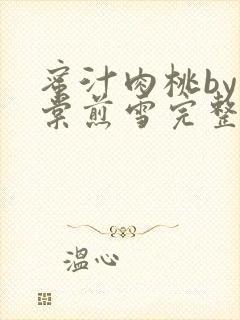 蜜汁肉桃by
棠煎雪完整
温心